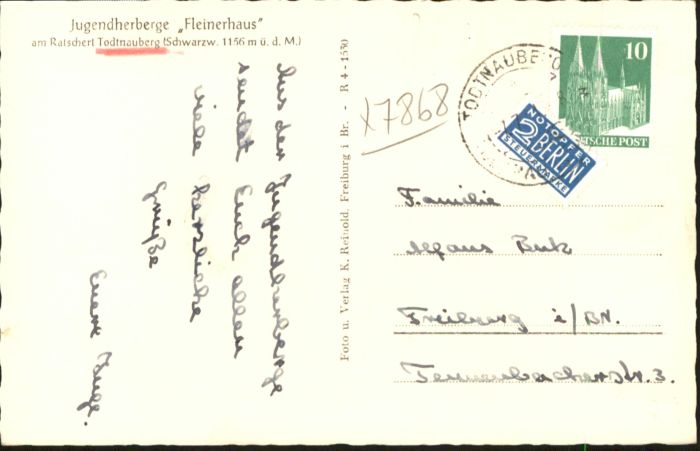 Jugendherberge „Fleinerhaus"
am Ratschert Todtnauberg (Schwarzw. 1156 m ü. d. M.)
Aus der Jugendherberge
sendet Euch allen
viele herzliche
Grüße
Eure Inge.
Foto u. Verlag K. Reinold, Freiburg i Br. - R 4 - 1550
17868
TODTNAUBE
10
DEUTSCHE POST
NOTOPFER
2 BERLIN
STEUERMARKE
Familie
Freiburg i/Br.
Tennenbacherstr. 3.